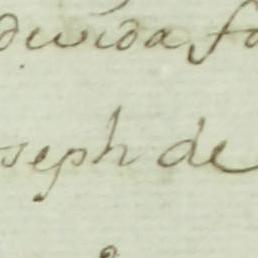 devida fo
seph de